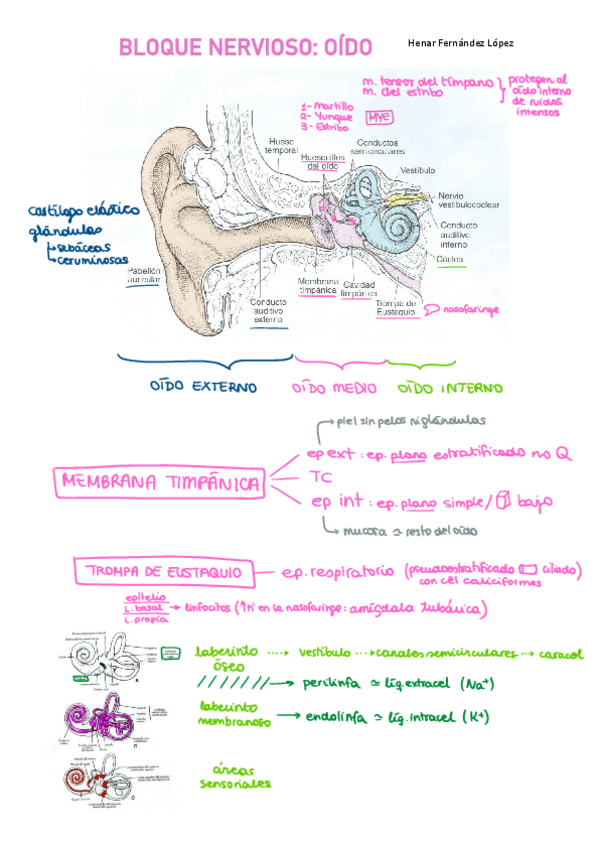 BLOQUE NERVIOSO: OÍDO
Henar Fernández López
m. tensor del tímpano
m. del estribo
protegen al
oído interno
de ruidos
intensos
1- Martillo
2- Yunque
3- Estribo
MYE
Hueso
temporal
Huesecillos
del oído
Conductos
semicirculares
Vestíbulo
Nervio
vestibulococlear
Conducto
auditivo
interno
Cóclea
cartílago elástico
glándulas
sebáceas
ceruminosas
Pabellón
auricular
Conducto
auditivo
externo
Membrana
timpánica
Cavidad
timpánica
Trompa de
Eustaquio
nasofaringe
OÍDO EXTERNO
OÍDO MEDIO
OÍDO INTERNO
piel sin pelos ni glándulas
MEMBRANA TIMPÁNICA
ep ext: ep. plano estratificado no Q
TC
ep int: ep. plano simple/ bajo
mucosa ≃ resto del oído
TROMPA DE EUSTAQUIO
ep. respiratorio (pseudoestratificado ciliado)
con cél caliciformes
epitelio
L. basal
L. propia
linfocitos (↑n en la nasofaringe: amígdala tubárica)
laberinto
óseo
vestíbulo
canales semicirculares
caracol
perilinfa ≃ líq. extracel (Na⁺)
laberinto
membranoso
endolinfa ≃ líq. intracel (K⁺)
áreas
sensoriales